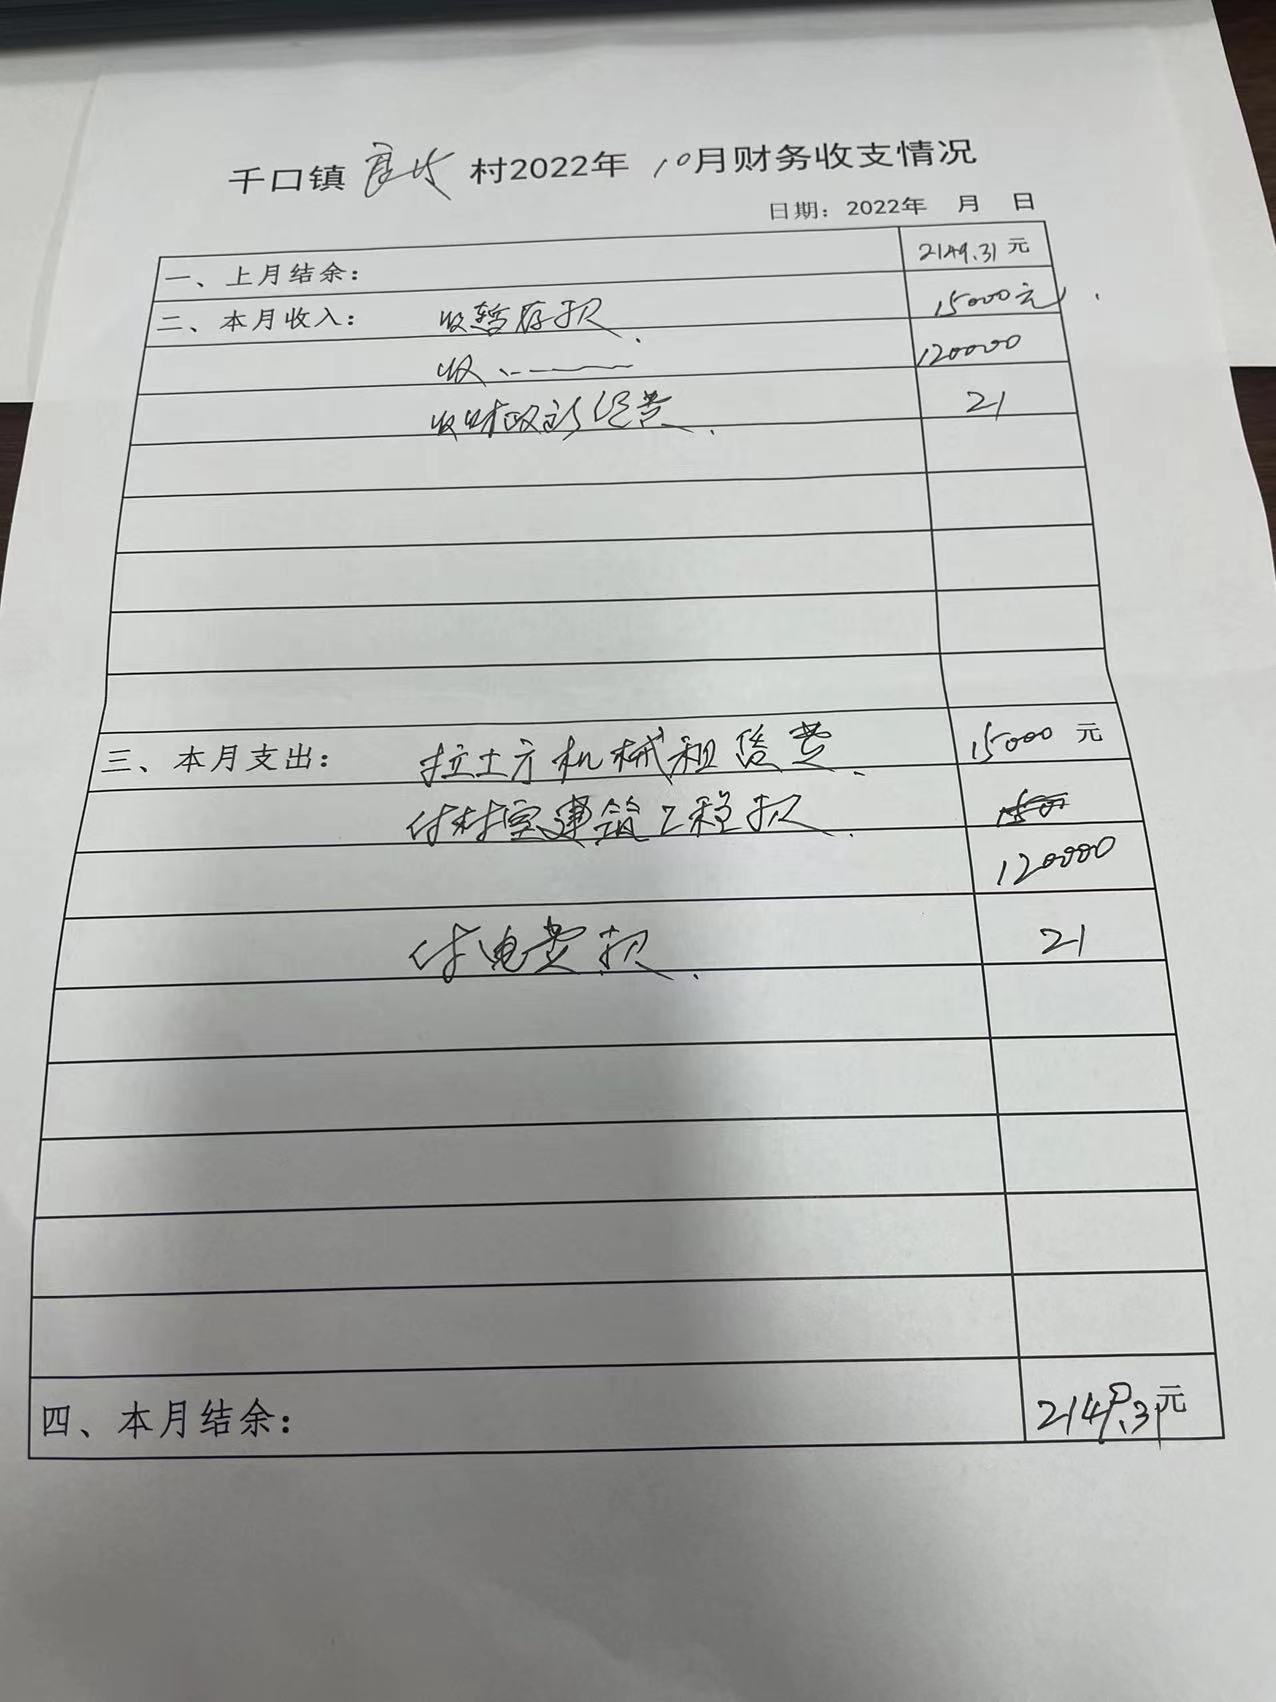 千口镇 村2022年 10月财务收支情况
日期：2022年 月 日
一、上月结余： 2149.31元
二、本月收入： 收暂存款. 15000元
收 120000
收财政 经费. 21
三、本月支出： 拉土方机械租赁费. 15000元
付村室建筑工程款.
120000
付电费款. 21
四、本月结余： 2149.31元